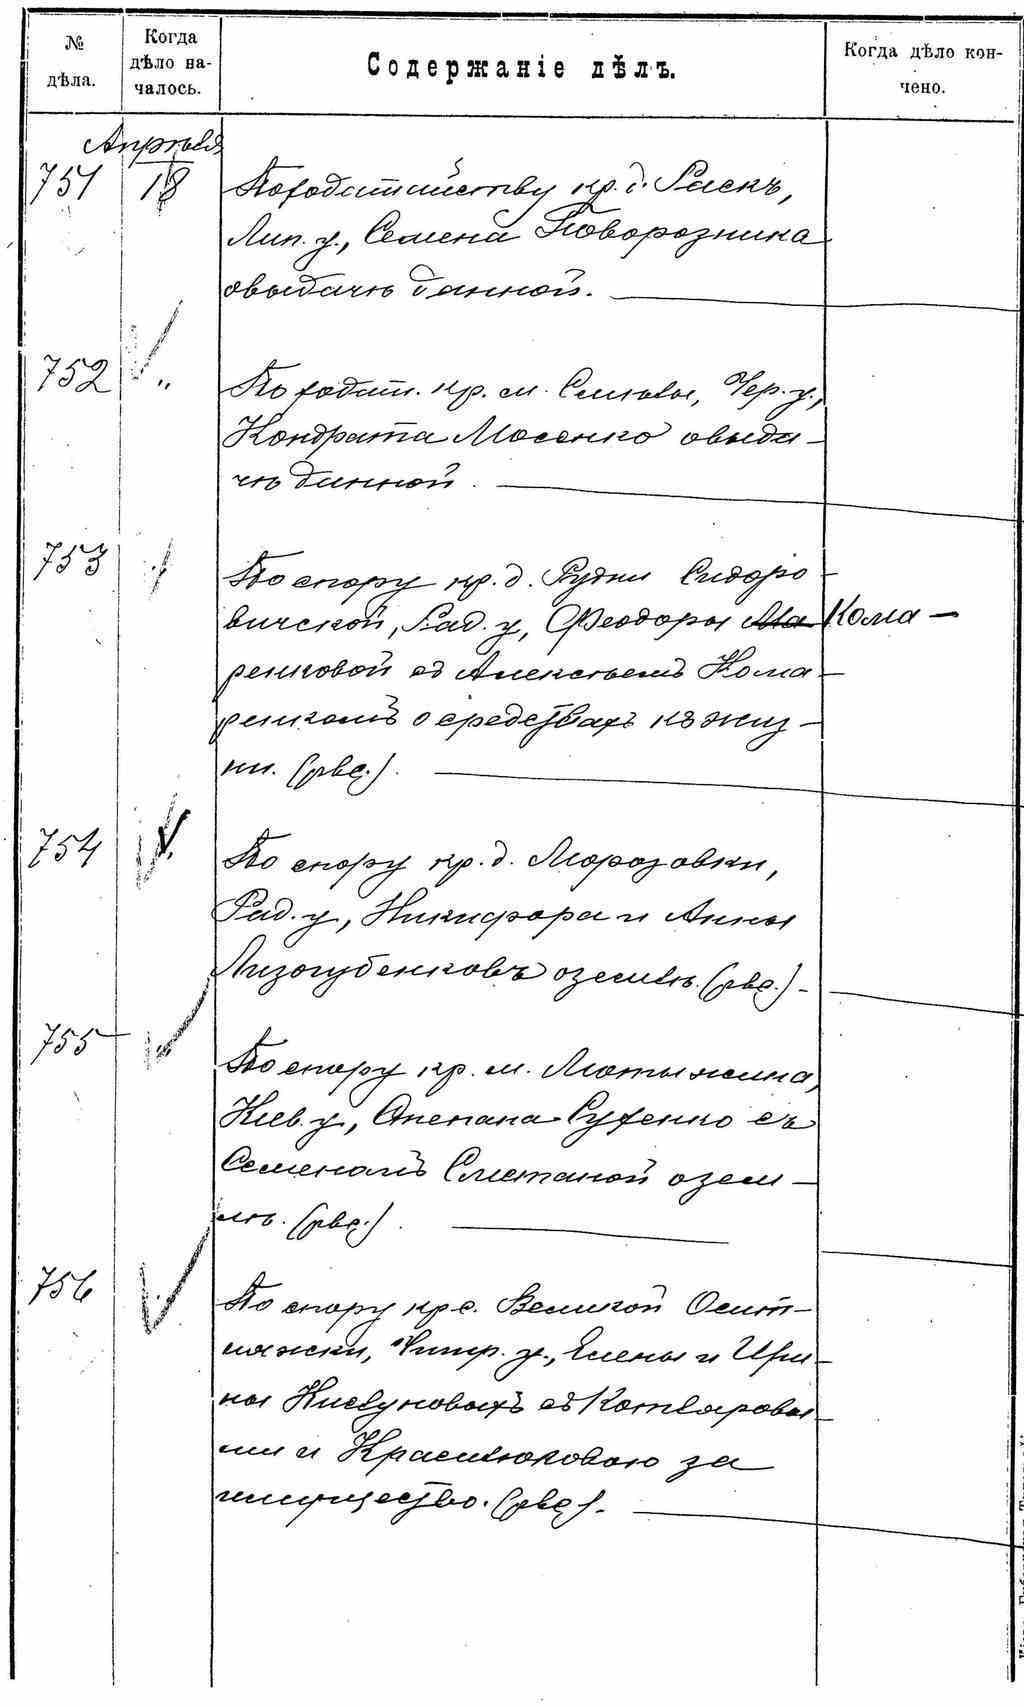 № дѣла.
Когда дѣло началось.
Содержаніе дѣлъ.
Когда дѣло кончено.
Апрѣля
751 18 По ходатайству кр. д. Раскъ,
Лип. у., Семена Поворозника
о выдачѣ данной.
752 „ По ходат. кр. м. Смѣлы, Чер. у.,
Кондрата Мосенко о выда-
чѣ данной.
753 По спору кр. д. Рудни Сидоро-
вичской, Рад. у., Феодоры Ма Кома-
ренковой съ Алексѣемъ Кома-
ренкомъ о средствахъ къ жиз-
ни. (рвс.).
754 По спору кр. д. Морозовки,
Рад. у., Никифора и Анны
Лизогубенковъ о землѣ. (рвс.)
755 По спору кр. м. Мотыжина,
Кіев. у., Степана Сутенко съ
Семеномъ Сметаной о зем-
лѣ. (рвс.).
756 По спору кр. с. Великой Осит-
няжки, Чигир. у., Елены и Ири-
ны съ Котляровы-
ми и Красилюковою за
имущество. (рвс).